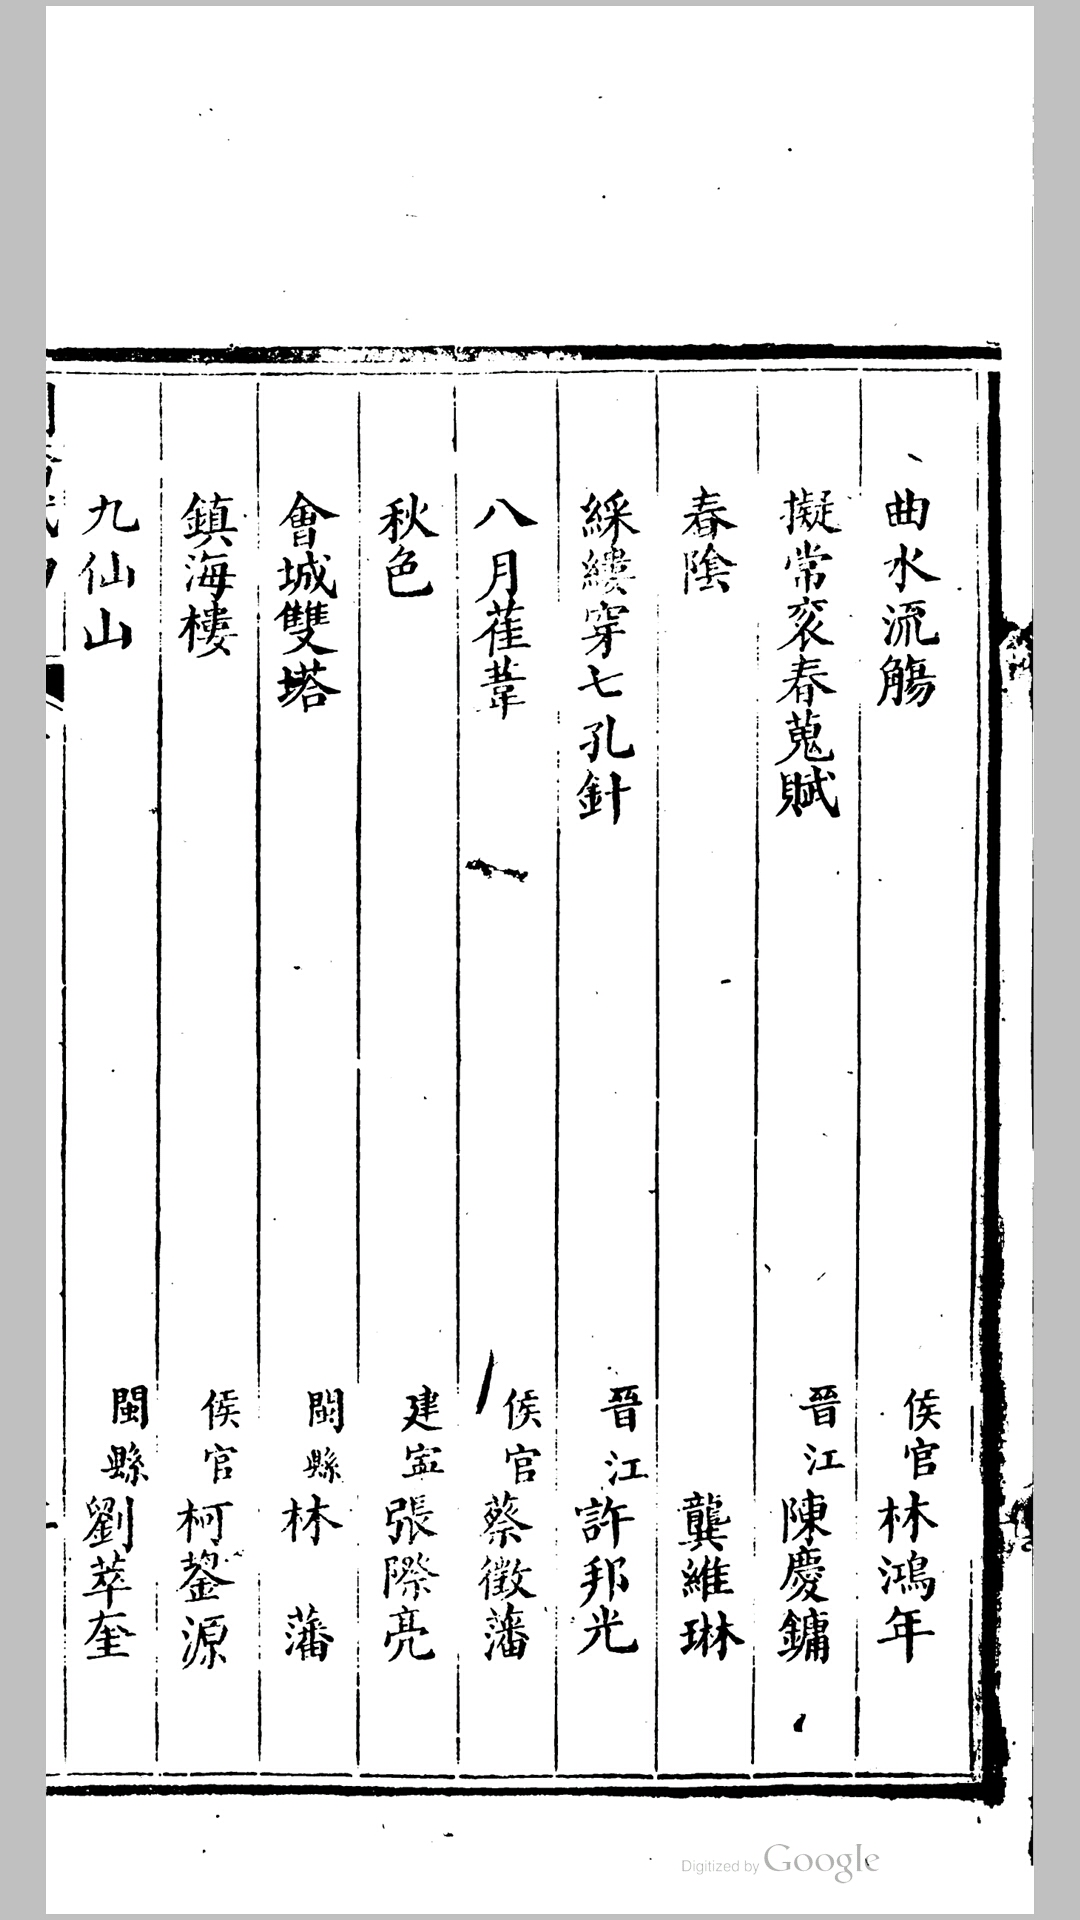 曲水流觴 侯官林鴻年
擬常袞春蒐賦 晉江陳慶鏞
春陰 龔維琳
綵縷穿七孔針 晉江許邦光
八月萑葦 侯官蔡徵藩
秋色 建寍張際亮
會城雙塔 閩縣林 藩
鎮海樓 侯官柯鎣源
九仙山 閩縣劉萃奎
Digitized by Google